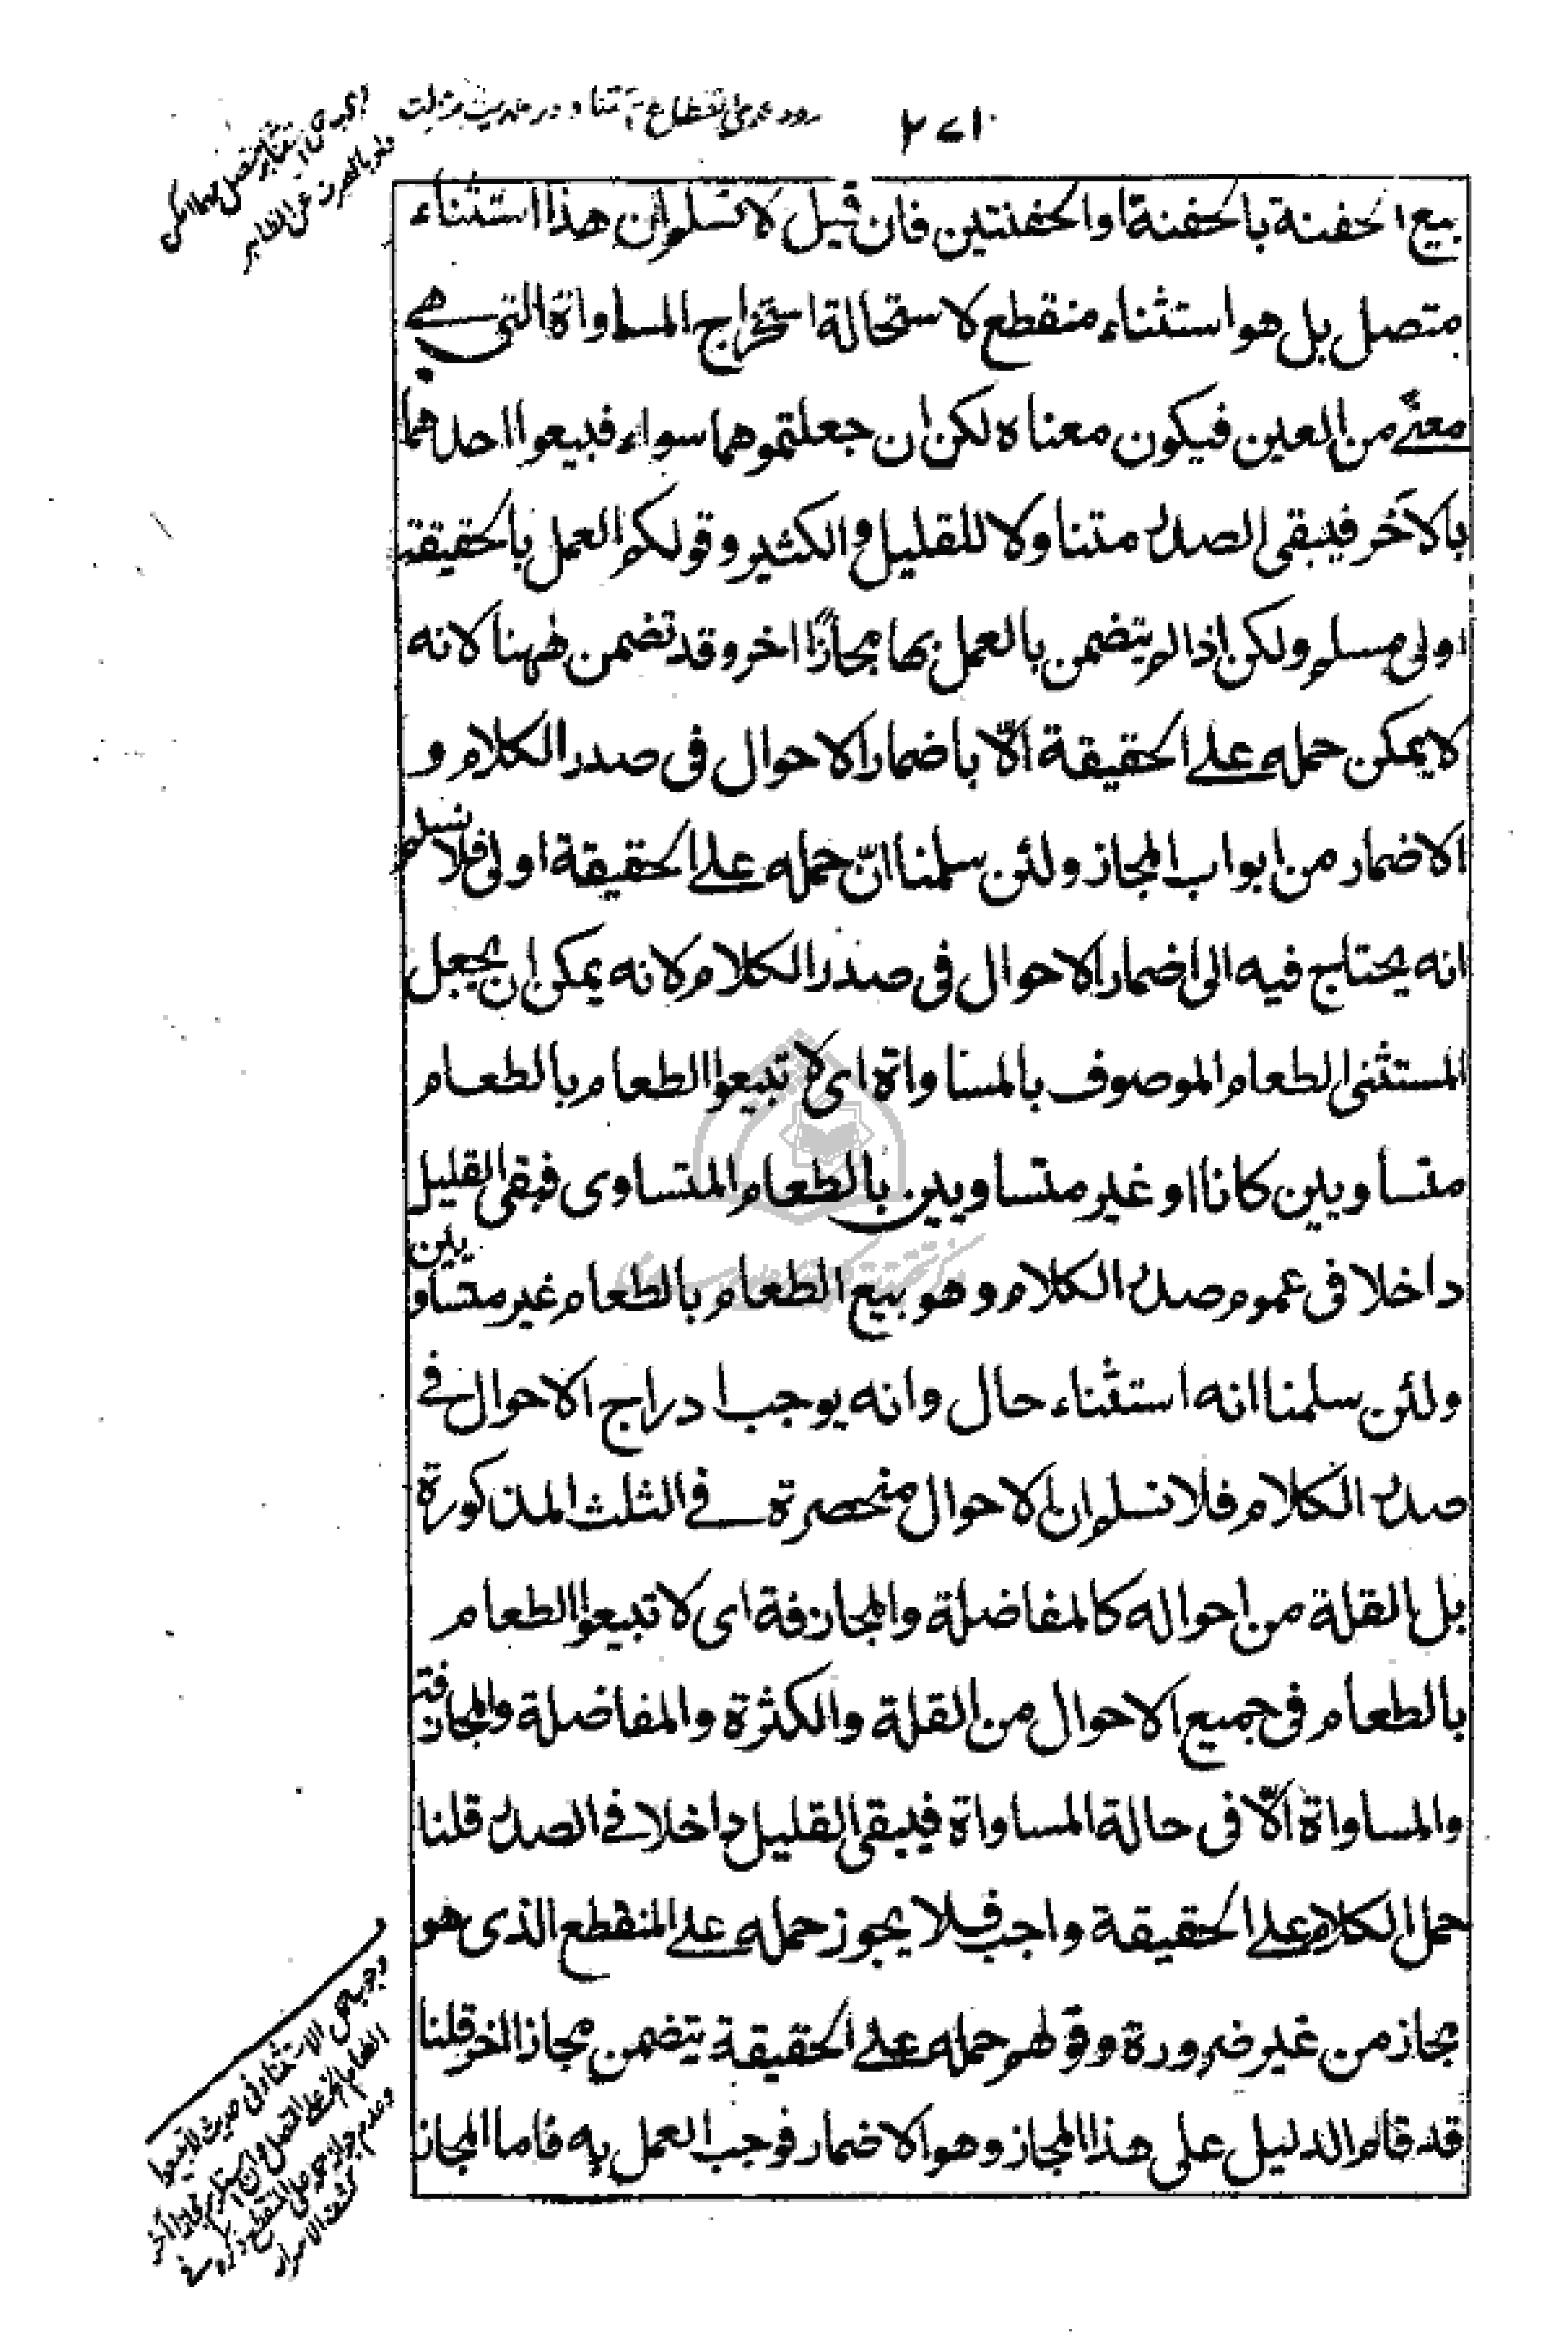 بيع الحفنة بالحفنة او الحفنتين فان قيل لا نسلم ان هذا استثناء
متصل بل هو استثناء منقطع لاستحالة استخراج المساواة التي هي
معنى من العين فيكون معناه لكن ان جعلتموهما سواء فبيعوا احدهما
بالآخر فيبقى الصدر متناولا للقليل والكثير وقولكم العمل بالحقيقة
اولى مسلم ولكن اذا لم يتضمن بالعمل بها مجازًا اخر وقد تضمن ههنا لانه
لا يمكن حمله على الحقيقة الّا باضمار الاحوال في صدر الكلام و
الاضمار من ابواب المجاز ولئن سلمنا انّ حمله على الحقيقة اولى فلا نسلم
انه يحتاج فيه الى اضمار الاحوال في صدر الكلام لانه يمكن ان يجعل
المستثنى الطعام الموصوف بالمساواة اى لا تبيعوا الطعام بالطعام
متساويين كانا او غير متساويين بالطعام المتساوى فبقى القليل
داخلا في عموم صدر الكلام وهو بيع الطعام بالطعام غير متساويين
ولئن سلمنا انه استثناء حال وانه يوجب ادراج الاحوال في
صدر الكلام فلا نسلم ان الاحوال منحصرة في الثلث المذكورة
بل القلة من احواله كالمفاضلة والمجازفة اى لا تبيعوا الطعام
بالطعام في جميع الاحوال من القلة والكثرة والمفاضلة والمجازفة
والمساواة الّا في حالة المساواة فيبقى القليل داخلا في الصدر قلنا
حمل الكلام على الحقيقة واجب فلا يجوز حمله على المنقطع الذى هو
مجاز من غير ضرورة وقولهم حمله على الحقيقة يتضمن مجازا اخر قلنا
قد قام الدليل على هذا المجاز وهو الاضمار فوجب العمل به فاما المجاز